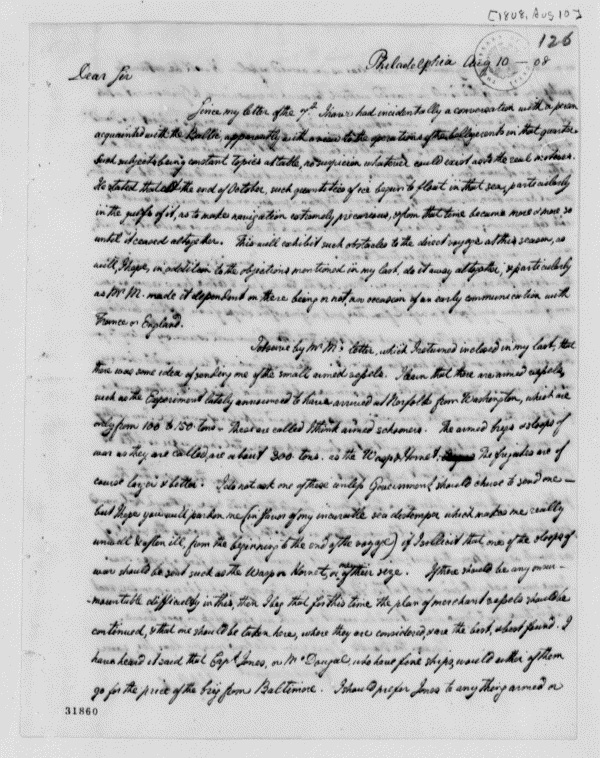 [1808, Aug 10]
126
Philadelphia Aug 10 - 08
Dear Sir
Since my letter of the 7th I have had incidentally a conversation with a person
acquainted with the Baltic, apparently with a view to the operations of the belligerents in that quarter
Such subjects being constant topics at table, no suspicion whatever could exist as to the real motives.
He stated that the end of October, such quantities of ice begin to float in that sea, particularly
in the of it, as to make navigation extremely precarious, & from that time became more & more so
until it ceased altogether. This will exhibit such obstacles to the direct voyage at this season, as
will, I hope, in addition to the objections mentioned in my last, do it away altogether; & particularly
as Mr. M. made it dependent on there being or not an occasion of an early communication with
France or England.
I observe by Mr. M's letter, which I returned inclosed in my last, that
there was some idea of sending me of the small armed vessels. I learn that there are armed vessels,
such as the Experiment lately announced to have arrived at Norfolk from Washington, which are
only from 100 to 150 tons - These are called I think armed schooners. The armed brigs & sloops of
war as they are called, are about 300 tons. as the Wasp & Hornet; The frigates are of
course larger & better. I do not ask one of these unless Government should chuse to send me -
but I hope you will pardon me (in favor of my incurable sea distemper which makes me really
unwell & often ill, from the beginning to the end of the voyage) if I solicit that one of the sloops of
war should be sent such as the Wasp or Hornet, or one of their size. If there should be any insur-
-mountable difficulty in this, then I beg that for this time the plan of merchant vessels should be
continued, & that one should be taken here, where they are considered, & are the best, & best found. I
have heard it said that Capt. Jones, or McDougal who have fine ships, would either of them
go for the price of the brig from Baltimore. I should prefer Jones to any thing armed or
31860